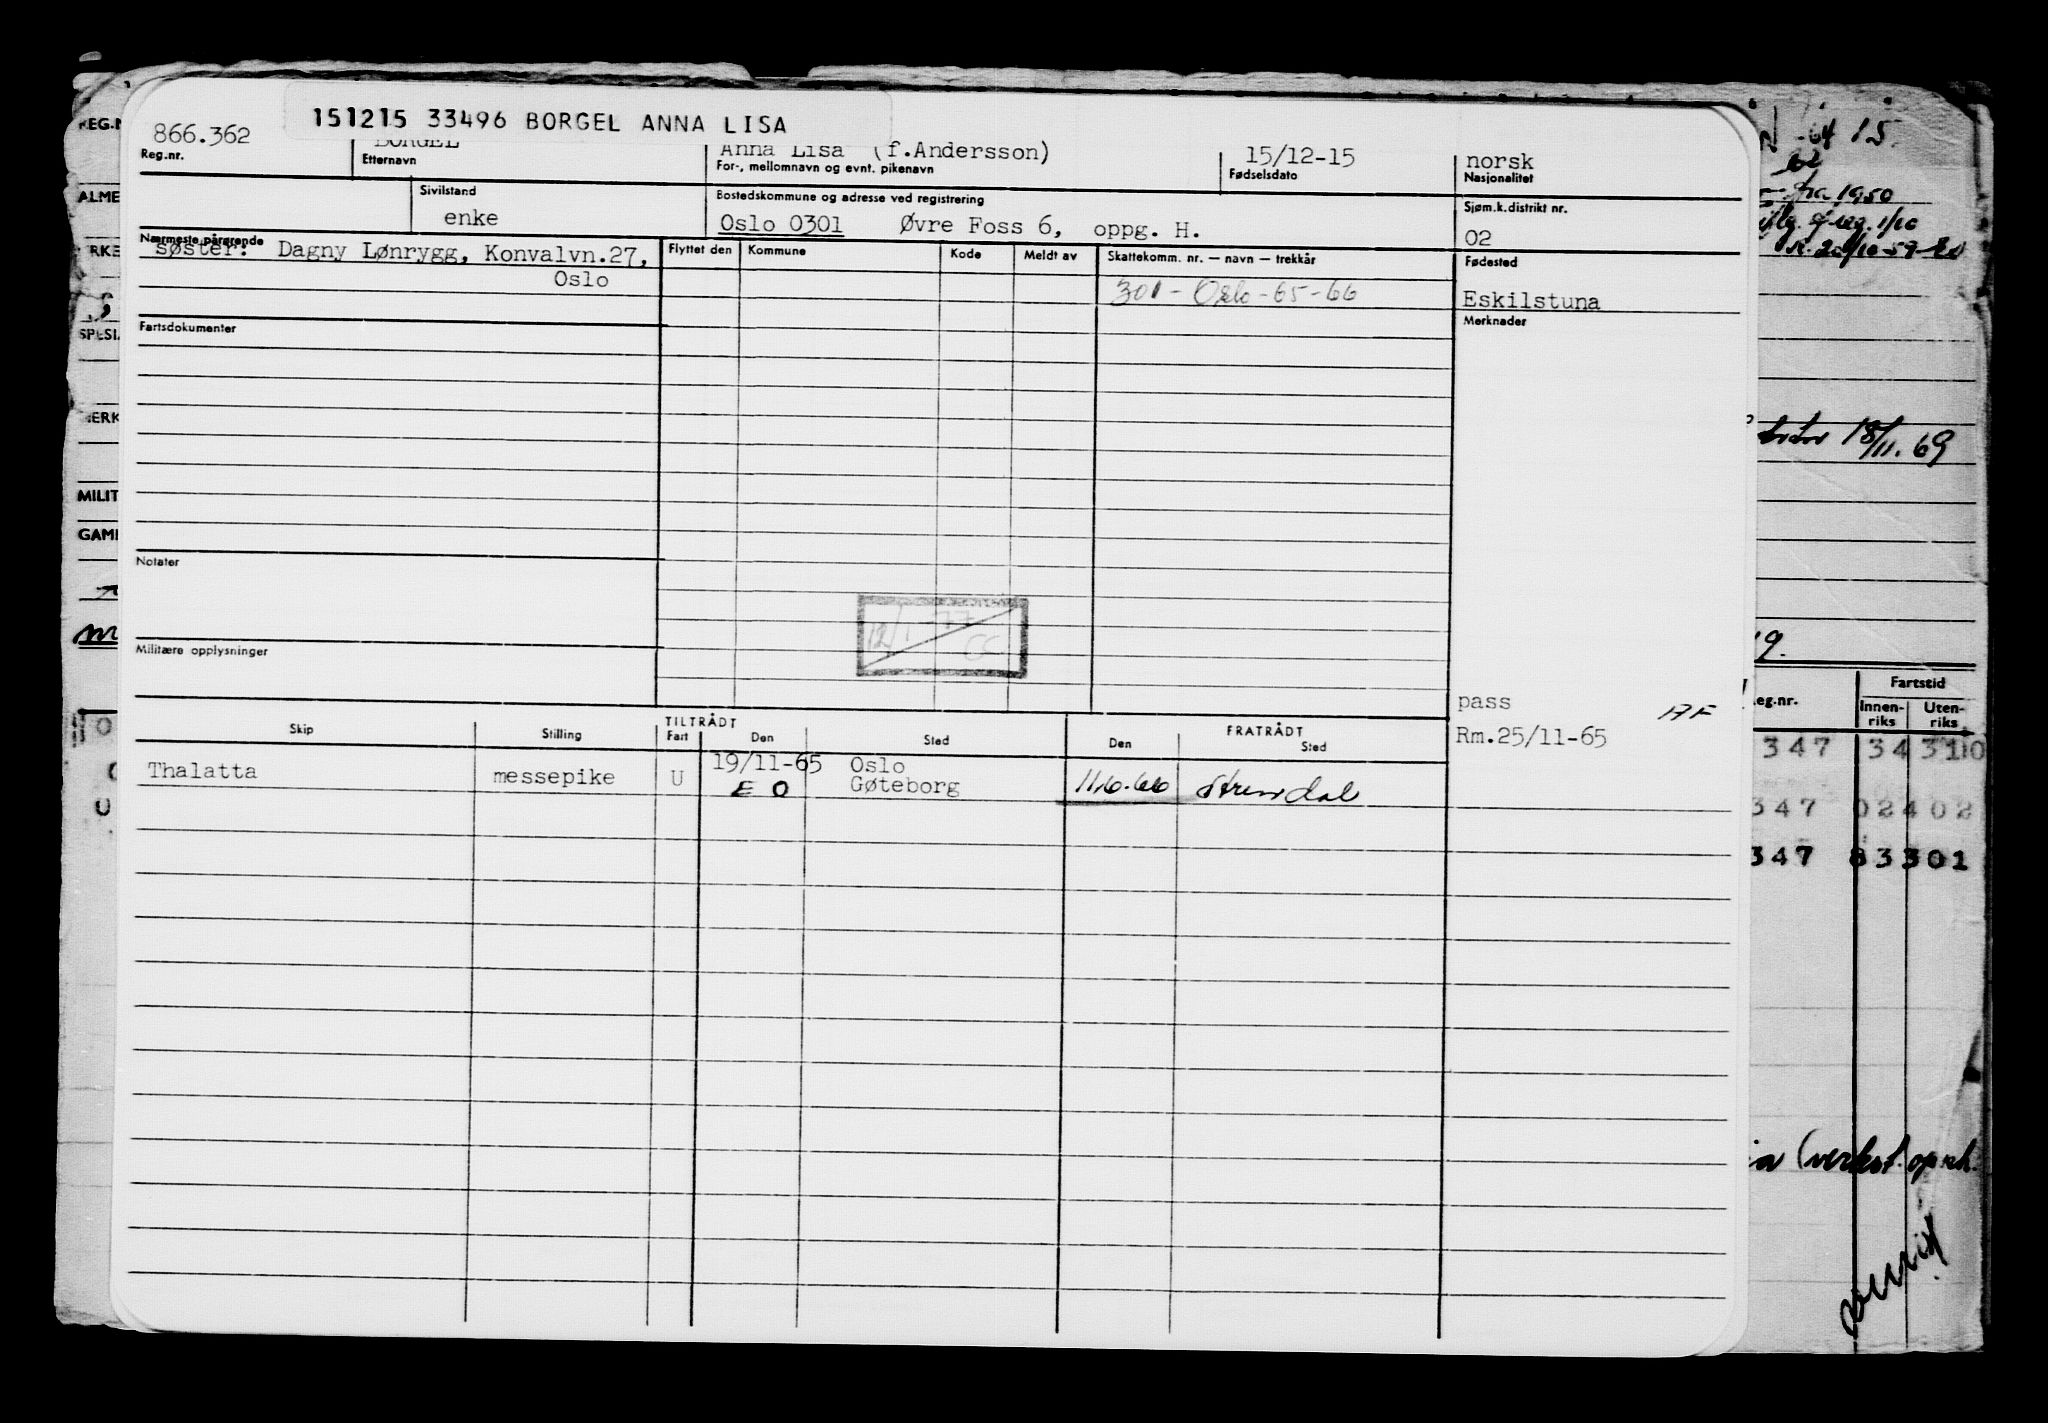 151215 33496 BORGEL ANNA LISA
866.362 BORGEL Anna Lisa (f.Andersson) 15/12-15 norsk
Reg.nr. Etternavn For-, mellomnavn og evnt. pikenavn Fødselsdato Nasjonalitet
Sivilstand Bostedskommune og adresse ved registrering Sjøm.k.distrikt nr.
enke Oslo 0301 Øvre Foss 6, oppg. H. 02
Nærmeste pårørende Flyttet den Kommune Kode Meldt av Skattekomm. nr. — navn — trekkår Fødested
søster: Dagny Lønrygg, Konvalvn.27,
Oslo 301 - Oslo - 65 - 66 Eskilstuna
Fartsdokumenter Merknader
Notater
12/1-77
Militære opplysninger
pass
Rm.25/11-65
Skip Stilling TILTRÅDT Fart Den Sted FRATRÅDT Den Sted
Thalatta messepike U 19/11-65 Oslo
E O Gøteborg 11.6.66
REG.N
ALME
SPESIA
MERK
MILIT
GAML
-64 15.
fra 1950
18/11.69
19.
eg.nr. Fartstid
Innen-riks Uten-riks
347 34310
347 02402
347 83301
(verkst.